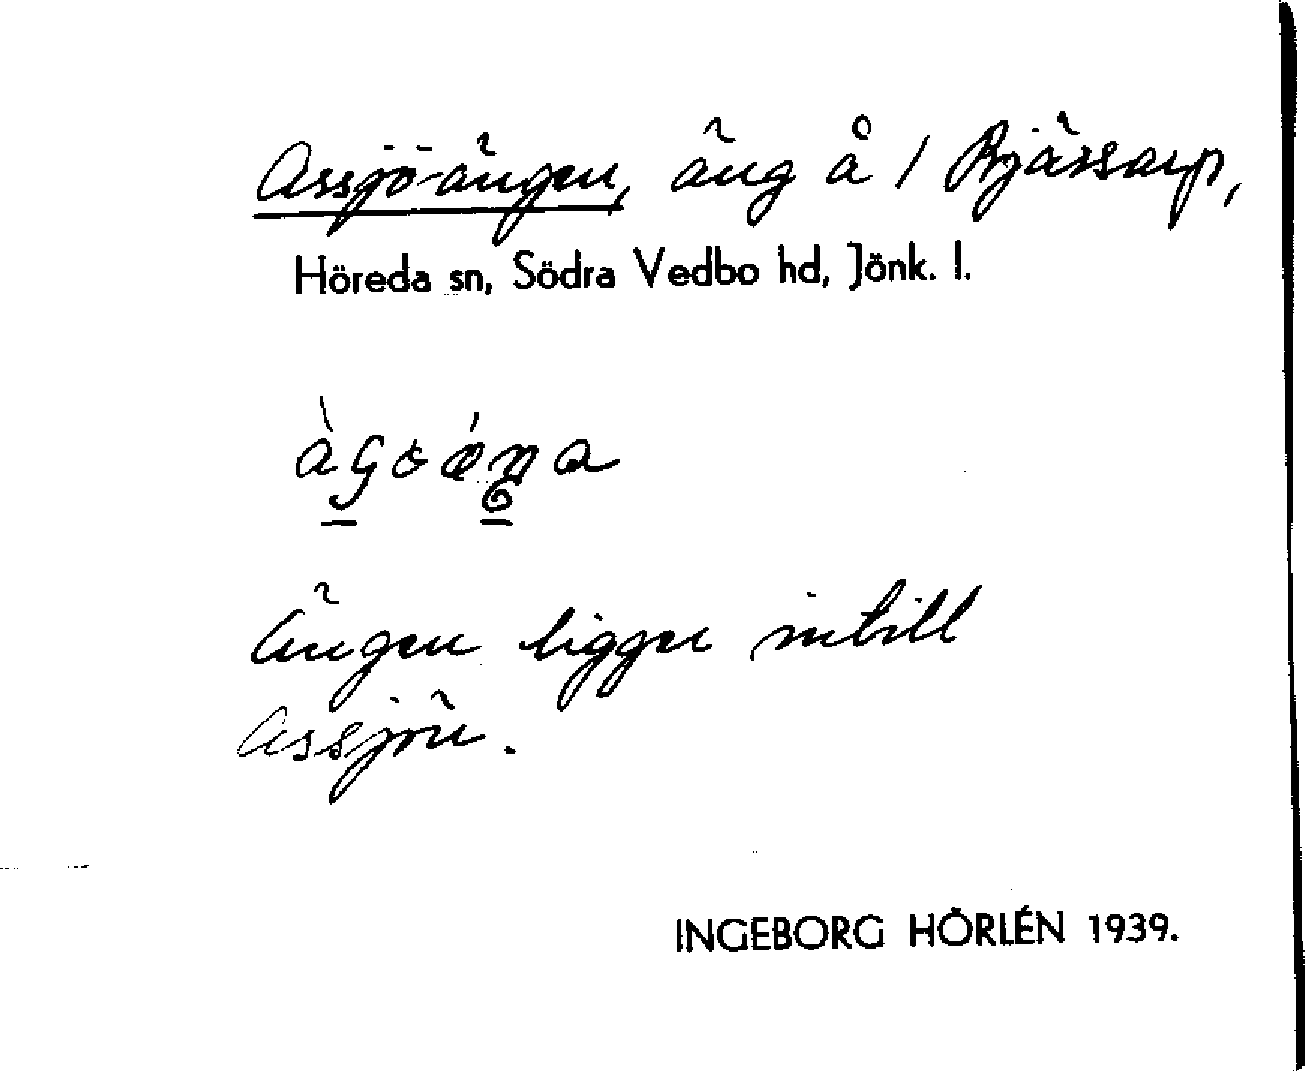 Assjö-ängen, äng å / Bjässarp,
Höreda sn, Södra Vedbo hd, Jönk. l.
Ängen ligger intill
Assjön.
INGEBORG HÖRLÉN 1939.